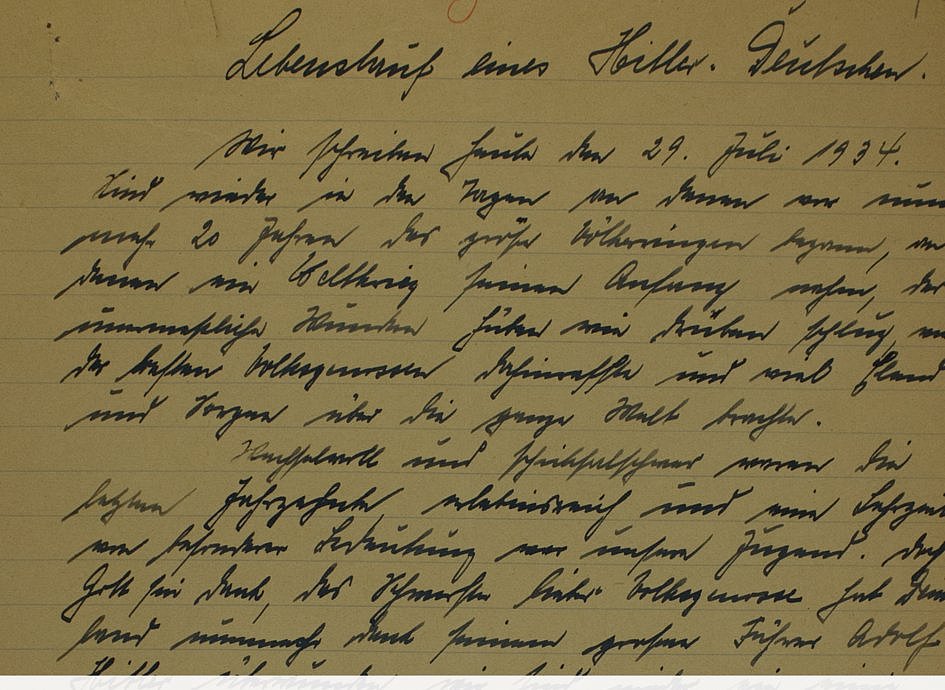 Lebenslauf eines Hitler-Deutschen.
Wir schreiben heute den 29. Juli 1934.
Sind wieder in den Tagen an denen vor nun
mehr 20 Jahren das große Völkerringen begann, an
denen ein Weltkrieg seinen Anfang nahm, der
unermeßliche Wunden hüben wie drüben schlug,
der besten Volksgenossen dahinraffte und viel Elend
und Sorgen über die ganze Welt brachte.
Wechselvoll und schicksalschwer waren die
letzten Jahrzehnte, erlebnisreich und eine Lehrzeit
von besonderer Bedeutung war unsere Jugend. Doch
Gott sei Dank, das Schwerste lieber Volksgenosse hat
land nunmehr dank seinem großen Führer Adolf
Hitler überwunden